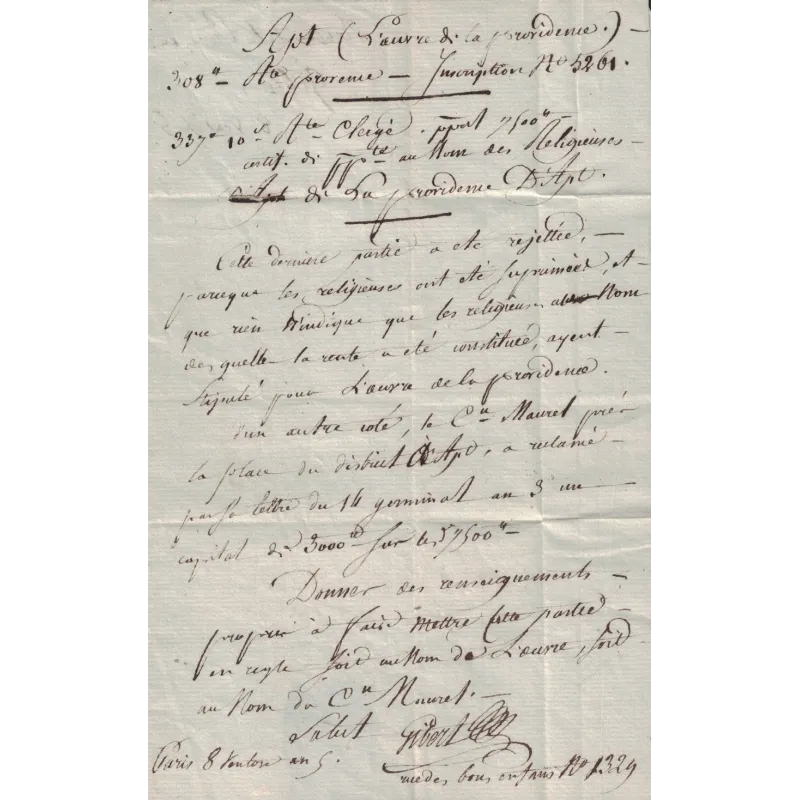 Apt (L'œuvre de la providence.) —
308# — Ate provence — Inscription No 5261.
337# 10s Ate Clergé. pprt 7500# —
constit. de ppté au Nom des Religieuses —
d'Apt de La providence D'Apt.
Cette derniere partie a eté rejettée, —
parceque les religieuses ont été suprimées, et
que rien n'indique que les religieuses au Nom
desquelles la rente a été constituée, ayent —
stipulé pour L'œuvre de la providence.
D'un autre coté, le Cn Maurel près
la place du district d'Apt, a reclamé —
par sa lettre du 14 germinal an 3 un —
capital de 3000# sur les 7500# —
Donner des renseignements —
propres à faire mettre cette partie —
en regle soit au Nom de L'œuvre, soit
au Nom du Cn Maurel. —
Salut Gibert
Paris 8 Ventose an 5.
rue des bons enfans No 1329